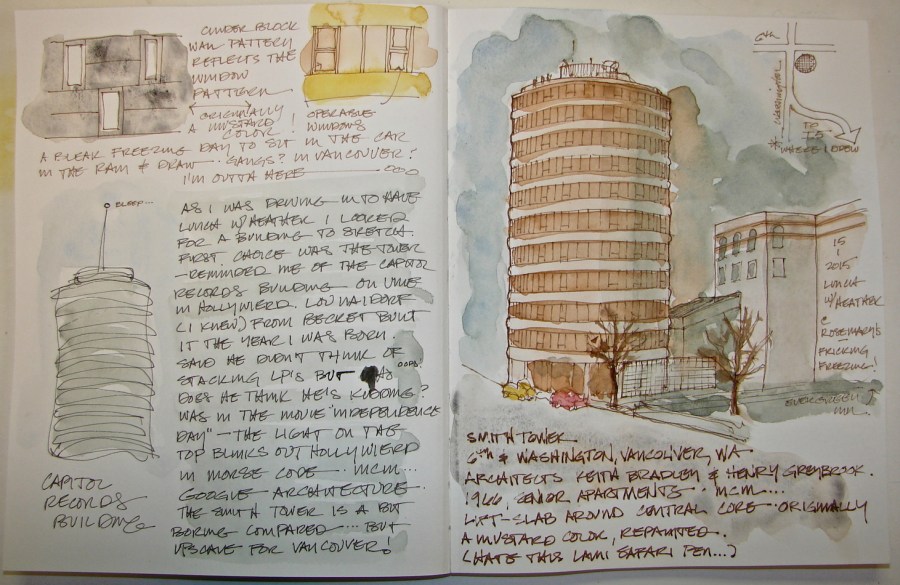 CINDER BLOCK
WALL PATTERN
REFLECTS THE
WINDOW
PATTERN
ORIGINALLY
A MUSTARD
COLOR!
OPERABLE
WINDOWS
A BLEAK FREEZING DAY TO SIT IN THE CAR
IN THE RAIN & DRAW... GANGS? IN VANCOUVER!
I'M OUTTA HERE
BLEEP...
AS I WAS DRIVING IN TO HAVE
LUNCH W/HEATHER I LOOKED
FOR A BUILDING TO SKETCH.
FIRST CHOICE WAS THE TOWER
—REMINDED ME OF THE CAPITOL
RECORDS BUILDING ON VINE
IN HOLLYWIERD. LOU NAIDORF
(I KNEW) FROM BECKET BUILT
IT THE YEAR I WAS BORN.
SAID HE DIDN'T THINK OF
OOPS!
STACKING LP'S BUT AS
DOES HE THINK HE'S KIDDING?
WAS IN THE MOVIE "INDEPENDENCE
DAY" — THE LIGHT ON THE
TOP BLINKS OUT HOLLYWIERD
IN MORSE CODE... MCM...
GOOGIE ARCHITECTURE.
THE SMITH TOWER IS A BIT
BORING COMPARED... BUT
UPSCALE FOR VANCOUVER!
CAPITOL
RECORDS
BUILDING
6TH
WASHINGTON
TO
I-5
* WHERE I DREW
15
1
2015
LUNCH
W/HEATHER
@
ROSEMARY'S
FRICKING
FREEZING!
EVERGREEN
INN
SMITH TOWER
6TH & WASHINGTON, VANCOUVER, WA
ARCHITECTS KEITH BRADLEY & HENRY GREYBROOK.
1966, SENIOR APARTMENTS... MCM...
LIFT-SLAB AROUND CENTRAL CORE... ORIGINALLY
A MUSTARD COLOR, REPAINTED.
(HATE THIS LAMI SAFARI PEN...)